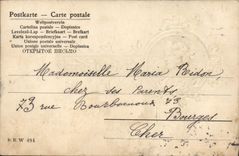 Postkarte — Carte postale
Weltpostverein
Cartolina postale — Dopisnice
Levelező-Lap — Briefkaart — Brefkort
Karta korespondencyjna — Post card
Unione postale universale
Union postale universelle — Dopisnica
ОТКРЫТОЕ ПИСЬМО
Mademoiselle Maria Bidon,
chez ses Parents
73 rue Bourbonnoux 73
Bourges
Cher
S.B.W 494